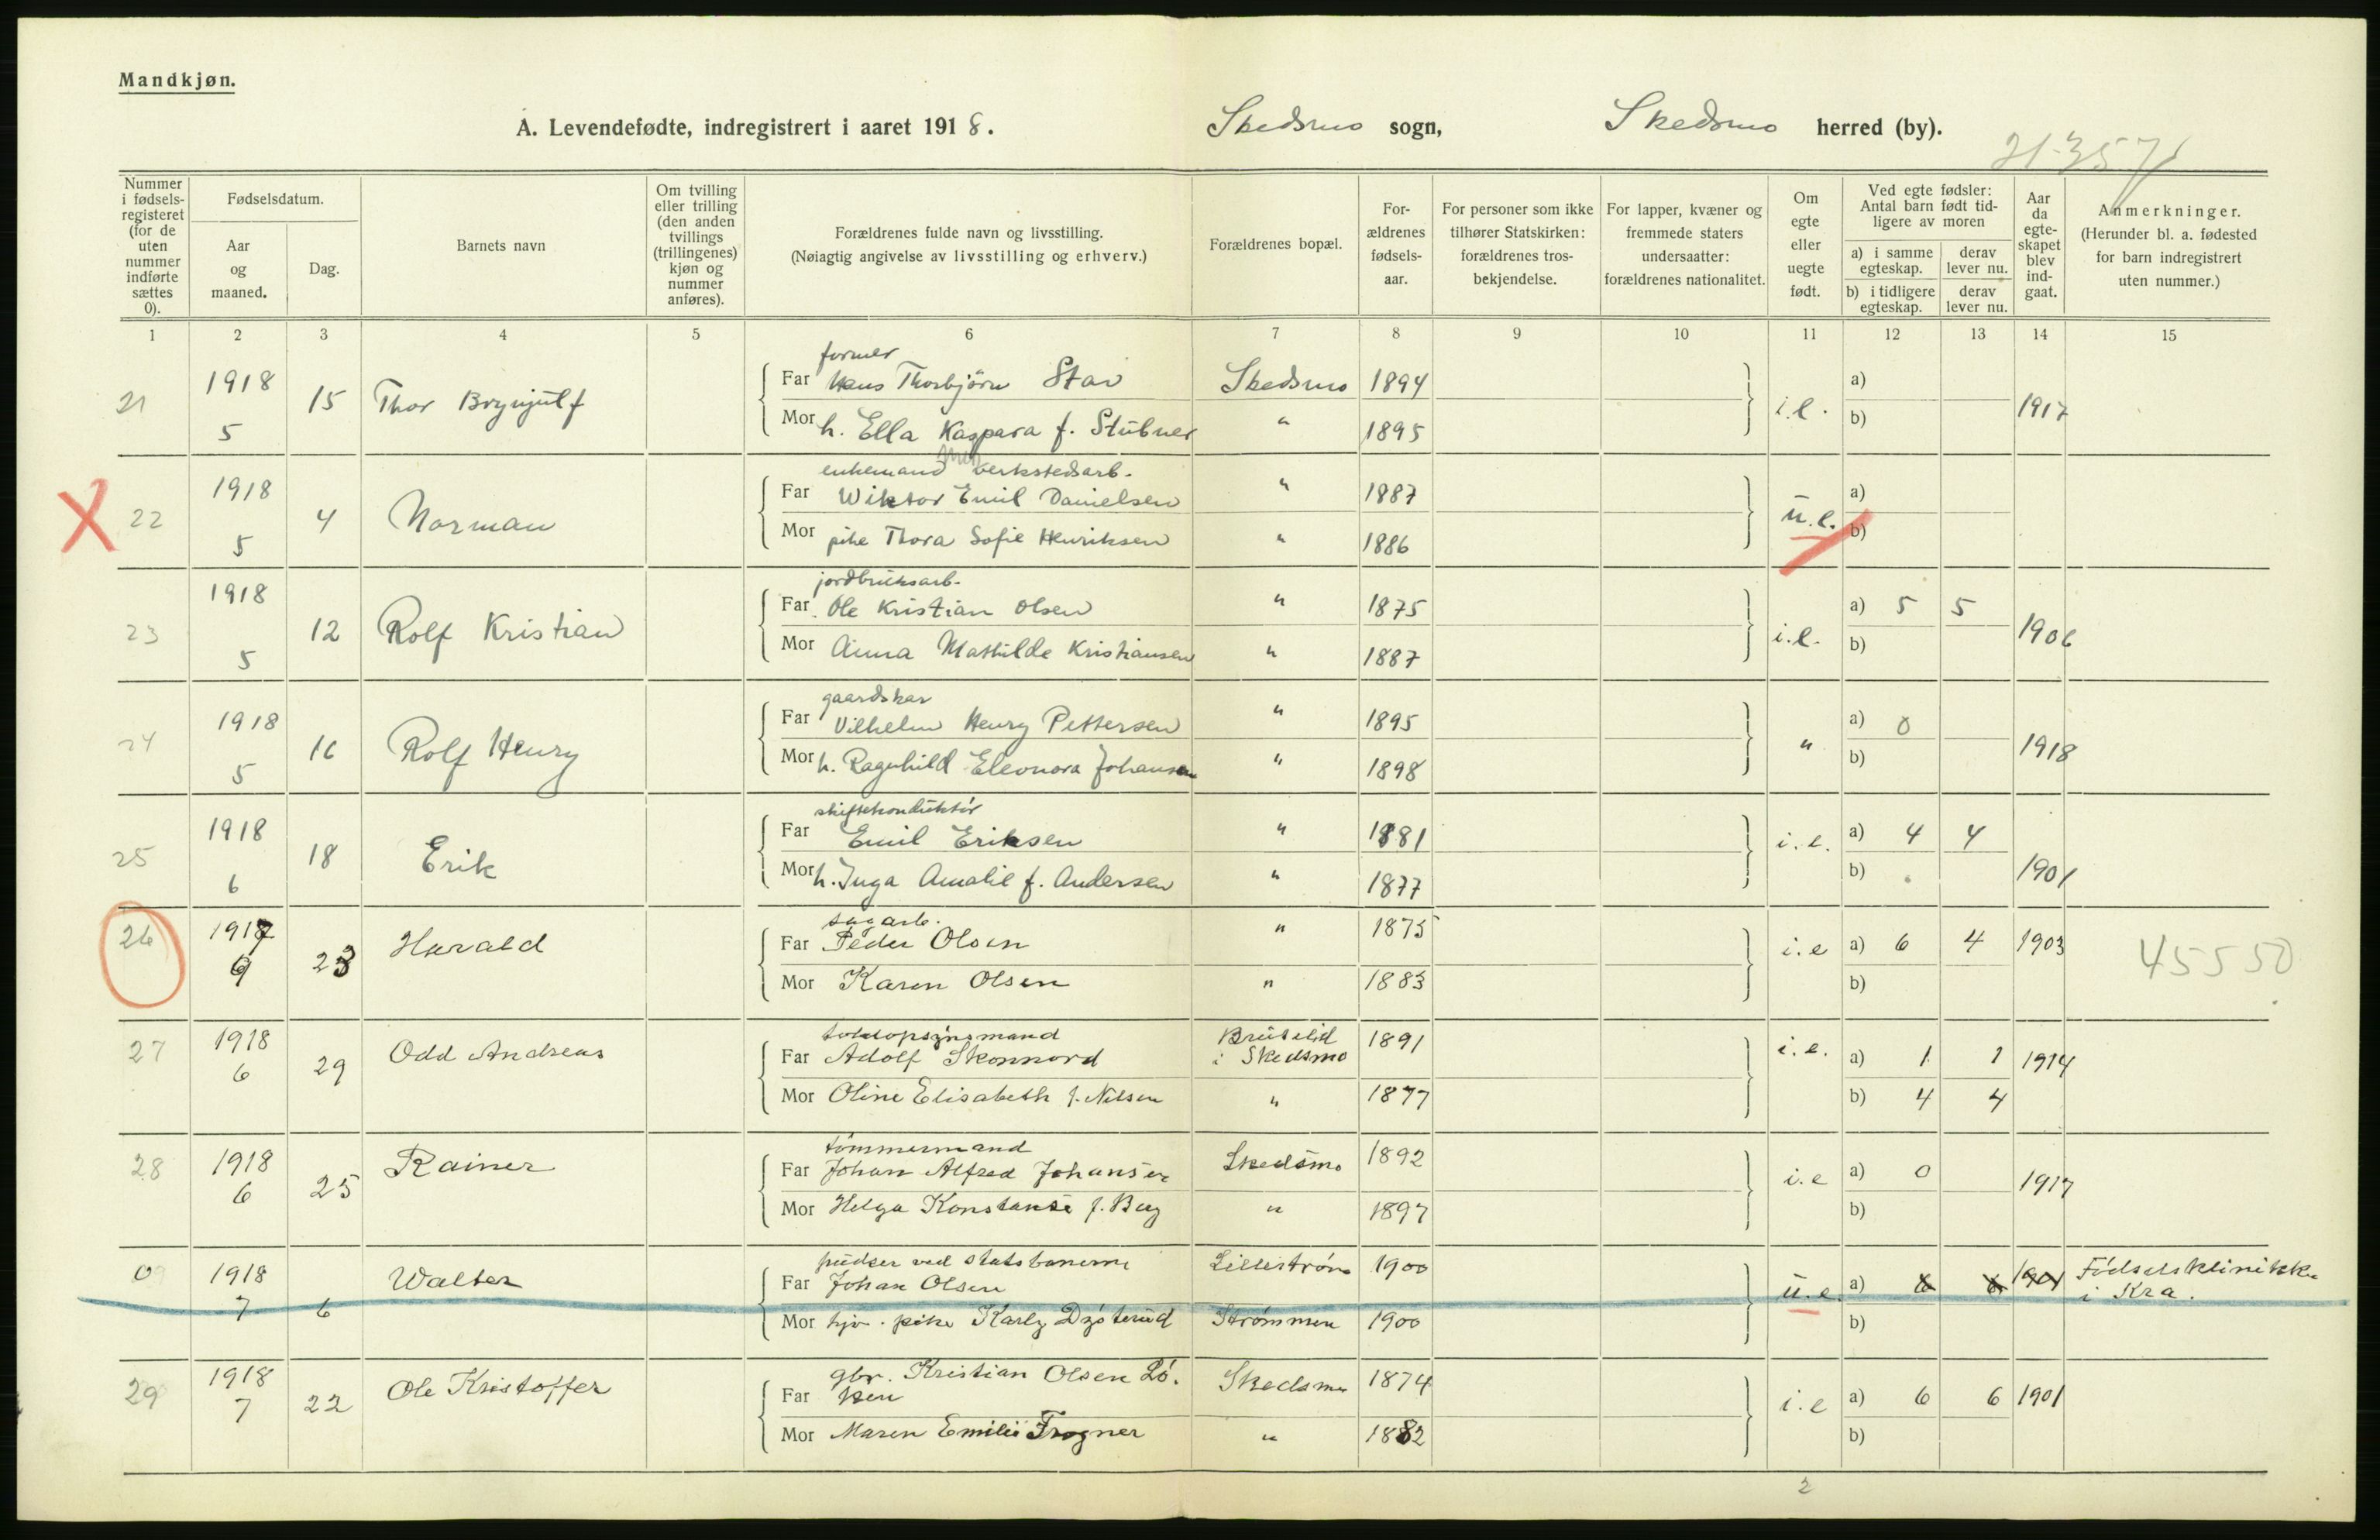 Mandkjøn.
A. Levendefødte, indregistrert i aaret 1918. Skedsmo sogn, Skedsmo herred (by).
21-3571
Nummer i fødselsregisteret (for de uten nummer indførte sættes 0).
Fødselsdatum.
Aar og maaned.
Dag.
Barnets navn
Om tvilling eller trilling (den anden tvillings (trillingenes) kjøn og nummer anføres).
Forældrenes fulde navn og livsstilling.
(Nøiagtig angivelse av livsstilling og erhverv.)
Forældrenes bopæl.
Forældrenes fødselsaar.
For personer som ikke tilhører Statskirken: forældrenes trosbekjendelse.
For lapper, kvæner og fremmede staters undersaatter: forældrenes nationalitet.
Om egte eller uegte født.
Ved egte fødsler: Antal barn født tidligere av moren
a) i samme egteskap.
derav lever nu.
b) i tidligere egteskap.
derav lever nu.
Aar da egteskapet blev indgaat.
Anmerkninger.
(Herunder bl. a. fødested for barn indregistrert uten nummer.)
1 2 3 4 5 6 7 8 9 10 11 12 13 14 15
former
21 1918 5 15 Thor Brynjulf Far Hans Thorbjörn Stav Skedsmo 1894 i.e. a) 1917
Mor h. Ella Kaspara f. Stübner " 1895 b)
enkemand verkstedsarb.
22 1918 5 4 Norman Far Wiktor Emil Danielsen " 1887 u.e. a)
Mor pike Thora Sofie Henriksen " 1886 b)
jordbruksarb.
23 1918 5 12 Rolf Kristian Far Ole Kristian Olsen " 1875 i.e. a) 5 5 1906
Mor Anna Mathilde Kristiansen " 1887 b)
gaardskar
24 1918 5 16 Rolf Henry Far Vilhelm Henry Pettersen " 1895 " a) 0 1918
Mor h. Ragnhild Eleonora Johansen " 1898 b)
skiftekonduktör
25 1918 6 18 Erik Far Emil Eriksen " 1881 i.e. a) 4 4 1901
Mor h. Inga Amalie f. Andersen " 1877 b)
sagarb.
26 1917 9 23 Harald Far Peder Olsen " 1875 i.e a) 6 4 1903 45550
Mor Karen Olsen " 1883 b)
toldopsynsmand
27 1918 6 29 Odd Andreas Far Adolf Skonnord i Skedsmo 1891 i.e. a) 1 1 1914
Mor Oline Elisabeth f. Nilsen " 1877 b) 4 4
tömmermand
28 1918 6 25 Rainer Far Johan Alfred Johansen Skedsmo 1892 i.e a) 0 1917
Mor Helga Konstanse f. Berg " 1897 b)
pudser ved statsbanerne
0 1918 7 6 Walter Far Johan Olsen Lillestrøm 1900 u.e. a) 6 6 1901 Fødselsklinikken i Kra.
Mor hjv. pike Karly Dysterud Strømmen 1900 b)
gbr. Kristian Olsen Lö-
29 1918 7 22 Ole Kristoffer Far ken Skedsmo 1874 i.e a) 6 6 1901
Mor Maren Emilie Trogner " 1882 b)
2